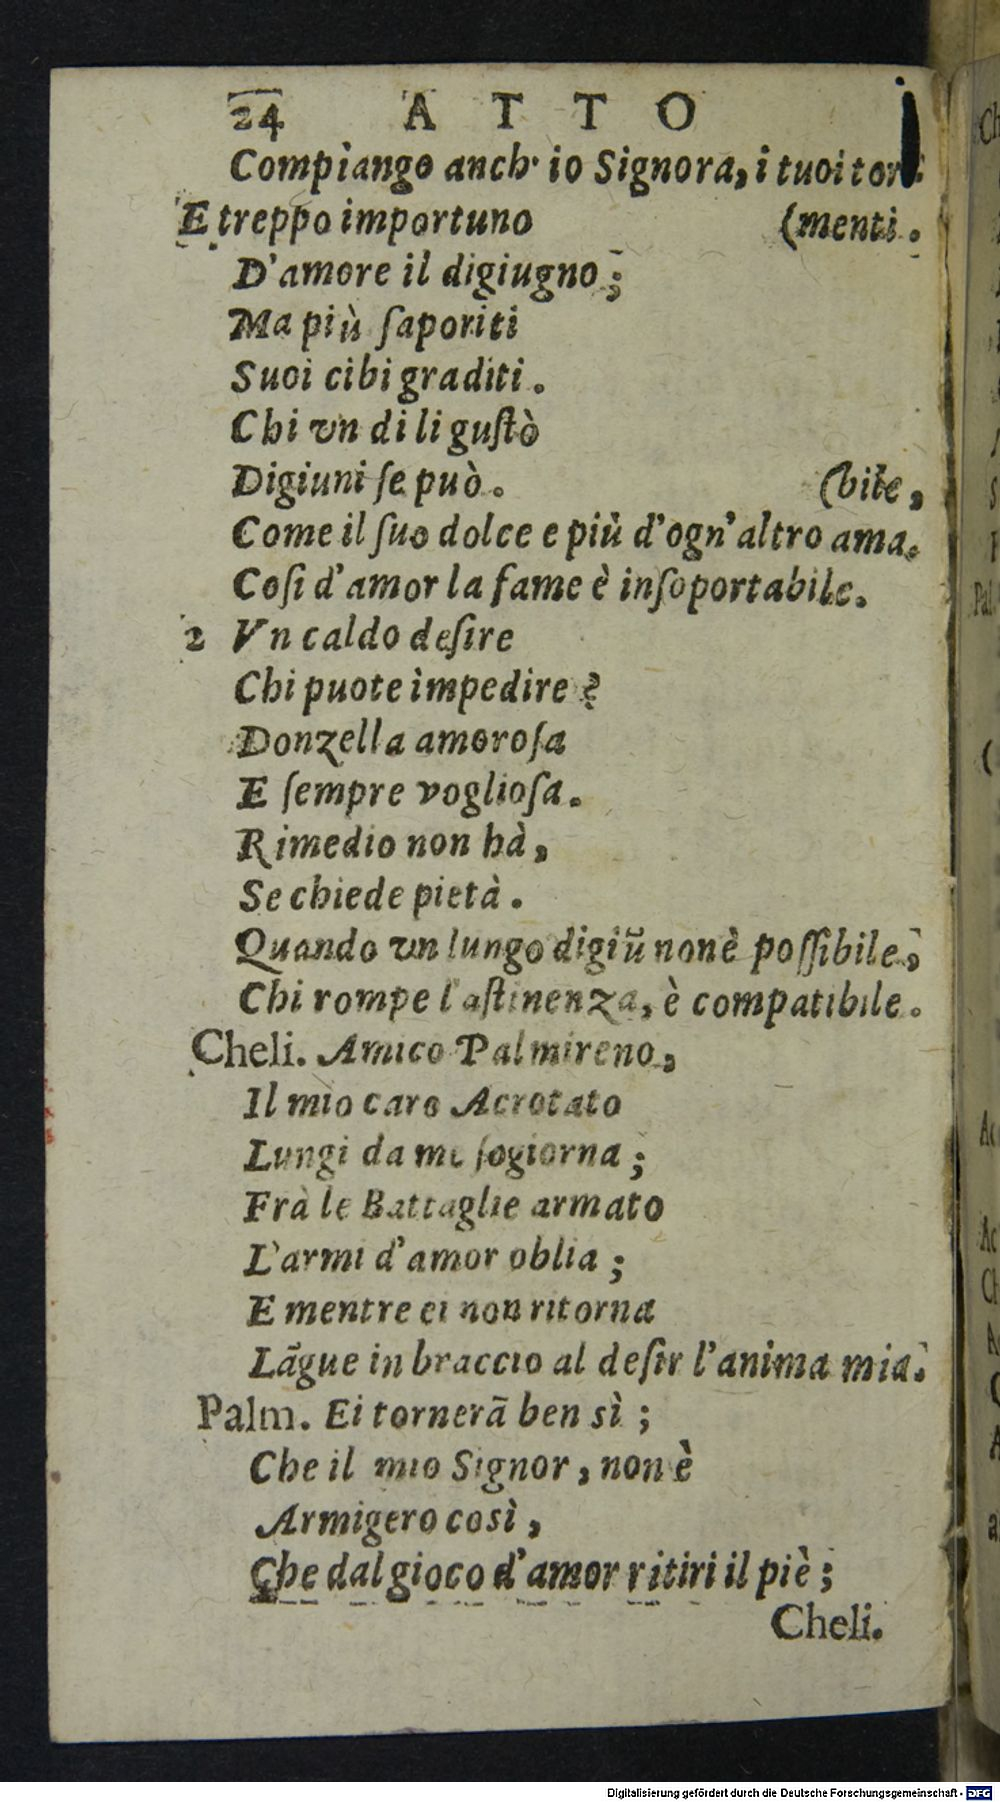 24 ATTO
Compiango anch' io Signora, i tuoi tor-
E treppo importuno (menti.
D'amore il digiugno;
Ma più ſaporiti
Suoi cibi graditi.
Chi vn di li guſtò
Digiuni ſe può. (bile,
Come il ſuo dolce e più d'ogn'altro ama-
Coſi d'amor la fame è inſoportabile.
2 Vn caldo deſire
Chi puote impedire?
Donzella amoroſa
E ſempre voglioſa.
Rimedio non hà,
Se chiede pietà.
Quando vn lungo digiũ non è poſſibile,
Chi rompe l'aſtinenza, è compatibile.
Cheli. Amico Palmireno,
Il mio caro Acrotato
Lungi da me ſogiorna;
Frà le Battaglie armato
L'armi d'amor oblia;
E mentre ei non ritorna
Lãgue in braccio al deſir l'anima mia.
Palm. Ei tornerã ben sì;
Che il mio Signor, non è
Armigero così,
Che dal gioco d'amor ritiri il piè;
Cheli.
Digitalisierung gefördert durch die Deutsche Forschungsgemeinschaft - DFG